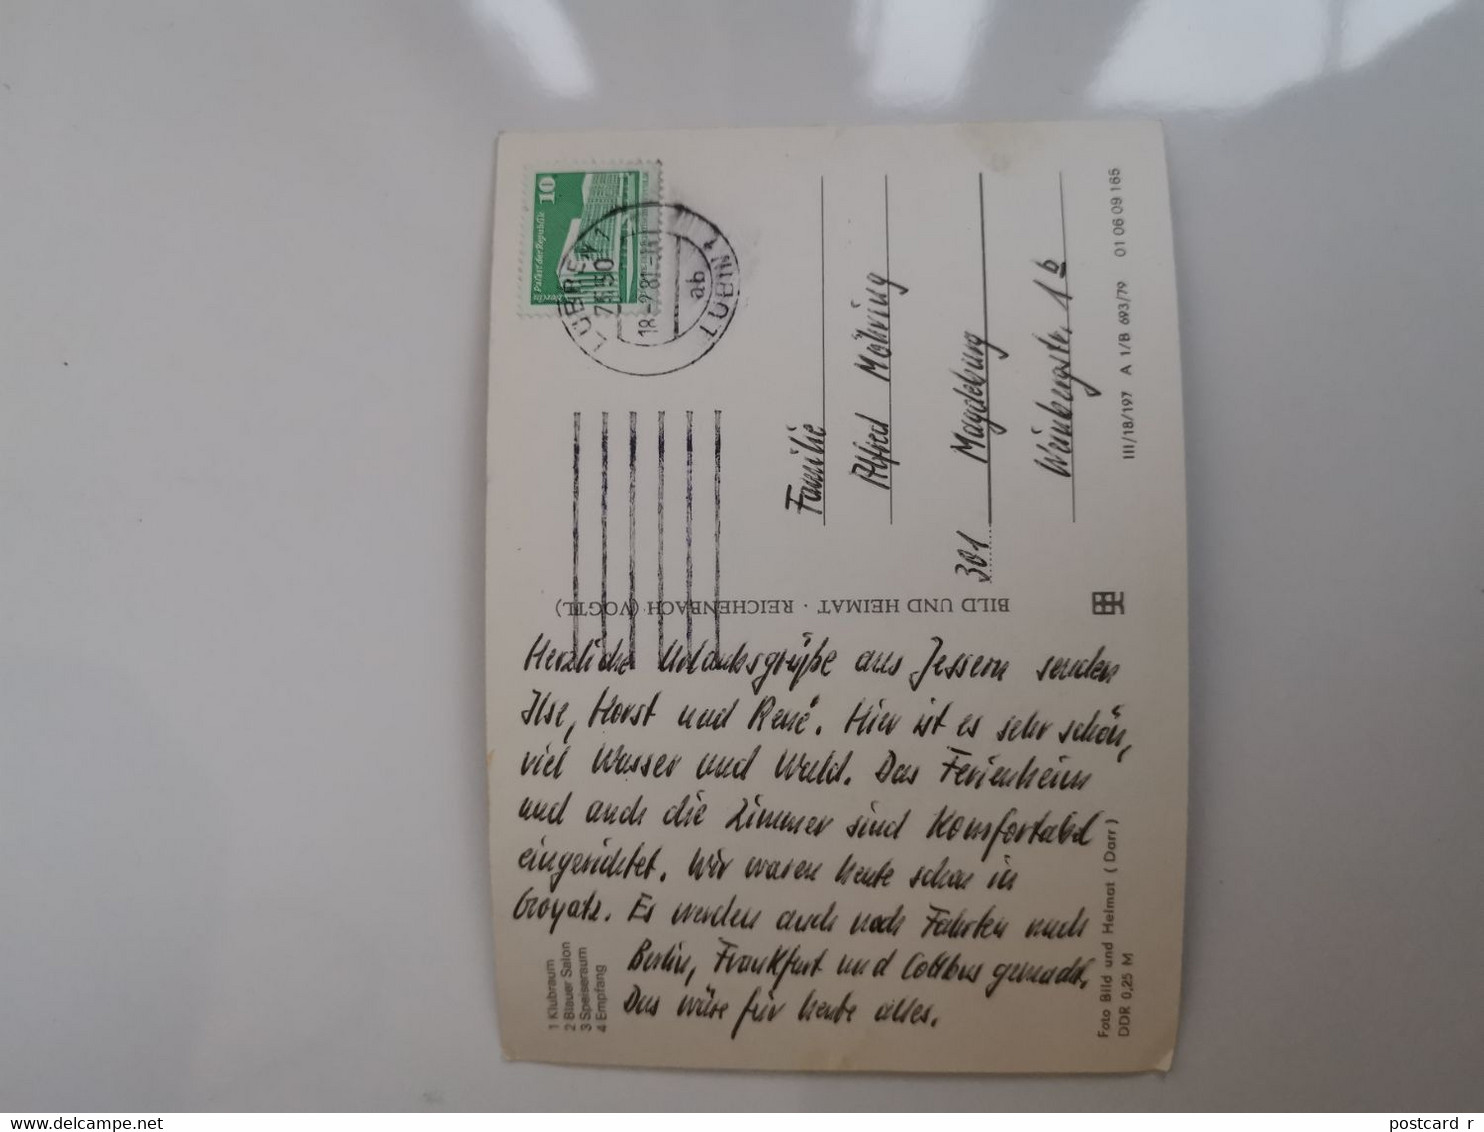 Herzliche Urlaubsgrüße aus Jessern senden
Ilse, Horst und René. Hier ist es sehr schön,
viel Wasser und Wald. Das Ferienheim
und auch die Zimmer sind komfortabel
eingerichtet. Wir waren heute schon in
Goyatz. Es werden auch noch Fahrten nach
Berlin, Frankfurt und Cottbus gemacht.
Das wäre für heute alles.
1 Klubraum
2 Blauer Salon
3 Speiseraum
4 Empfang
Foto Bild und Heimat (Darr)
DDR 0,25 M
BILD UND HEIMAT · REICHENBACH (VOGTL)
10
Palast der Republik
Berlin
7550
18.-2.81
ab
LÜBBEN 1
Familie
Alfred Möhring
301 Magdeburg
Weinbergstr. 1b
III/18/197 A 1/B 693/79 01 06 09 165
www.delcampe.net
postcard_r